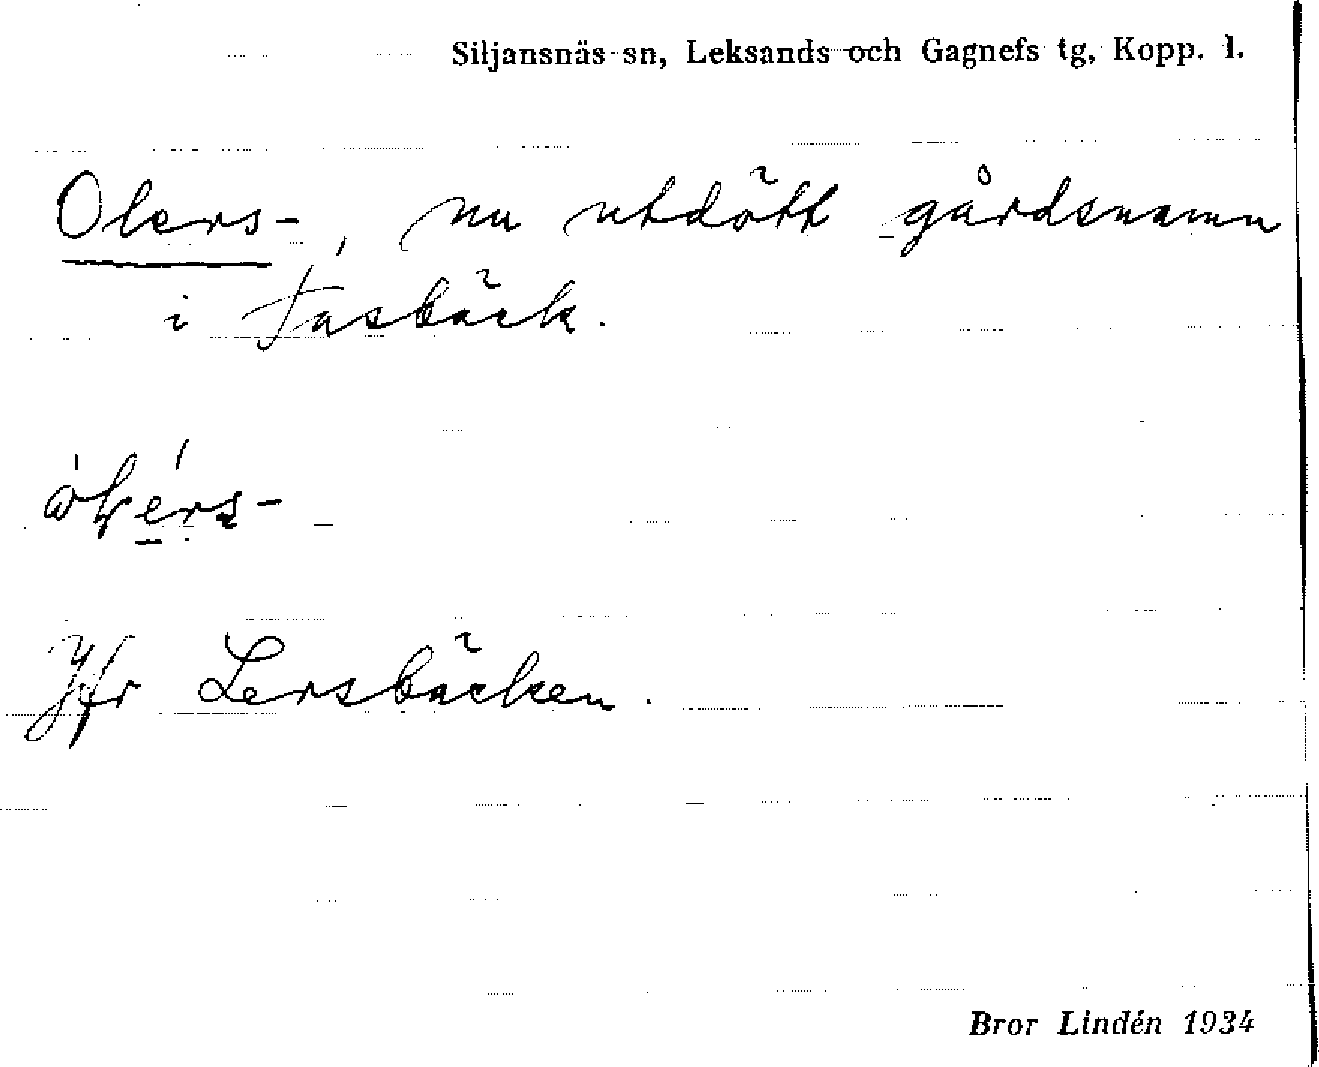 Siljansnäs sn, Leksands och Gagnefs tg, Kopp. l.
Olers-, nu utdött gårdsnamn
i Fasbäck.
Jfr Lersbäcken.
Bror Lindén 1934